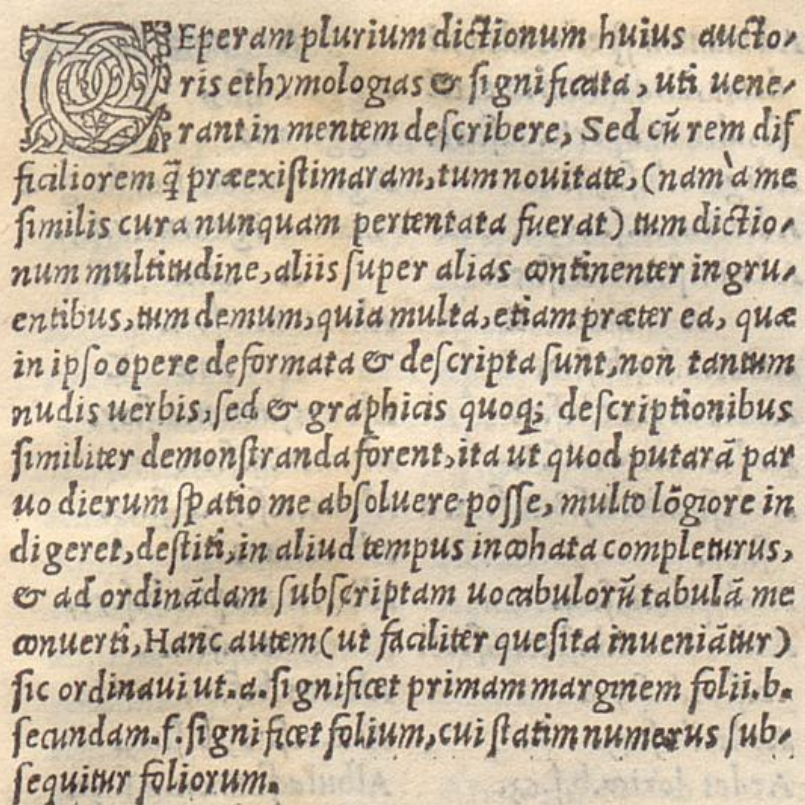 CEperam plurium dictionum huius aucto/
ris ethymologias & significata, uti uene/
rant in mentem describere, Sed cũ rem dif
ficiliorem q̃ præexistimaram, tum nouitate, (nam à me
similis cura nunquam pertentata fuerat) tum dictio/
num multitudine, aliis super alias continenter ingru/
entibus, tum demum, quia multa, etiam præter ea, quæ
in ipso opere deformata & descripta sunt, non tantum
nudis uerbis, sed & graphicis quoq; descriptionibus
similiter demonstranda forent, ita ut quod putarã par
uo dierum spatio me absoluere posse, multo lõgiore in
digeret, destiti, in aliud tempus incohata completurus,
& ad ordinãdam subscriptam uocabulorũ tabulã me
conuerti, Hanc autem (ut faciliter quesita inueniãtur)
sic ordinaui ut .a. significet primam marginem folii .b.
secundam .f. significet folium, cui statim numerus sub/
sequitur foliorum.